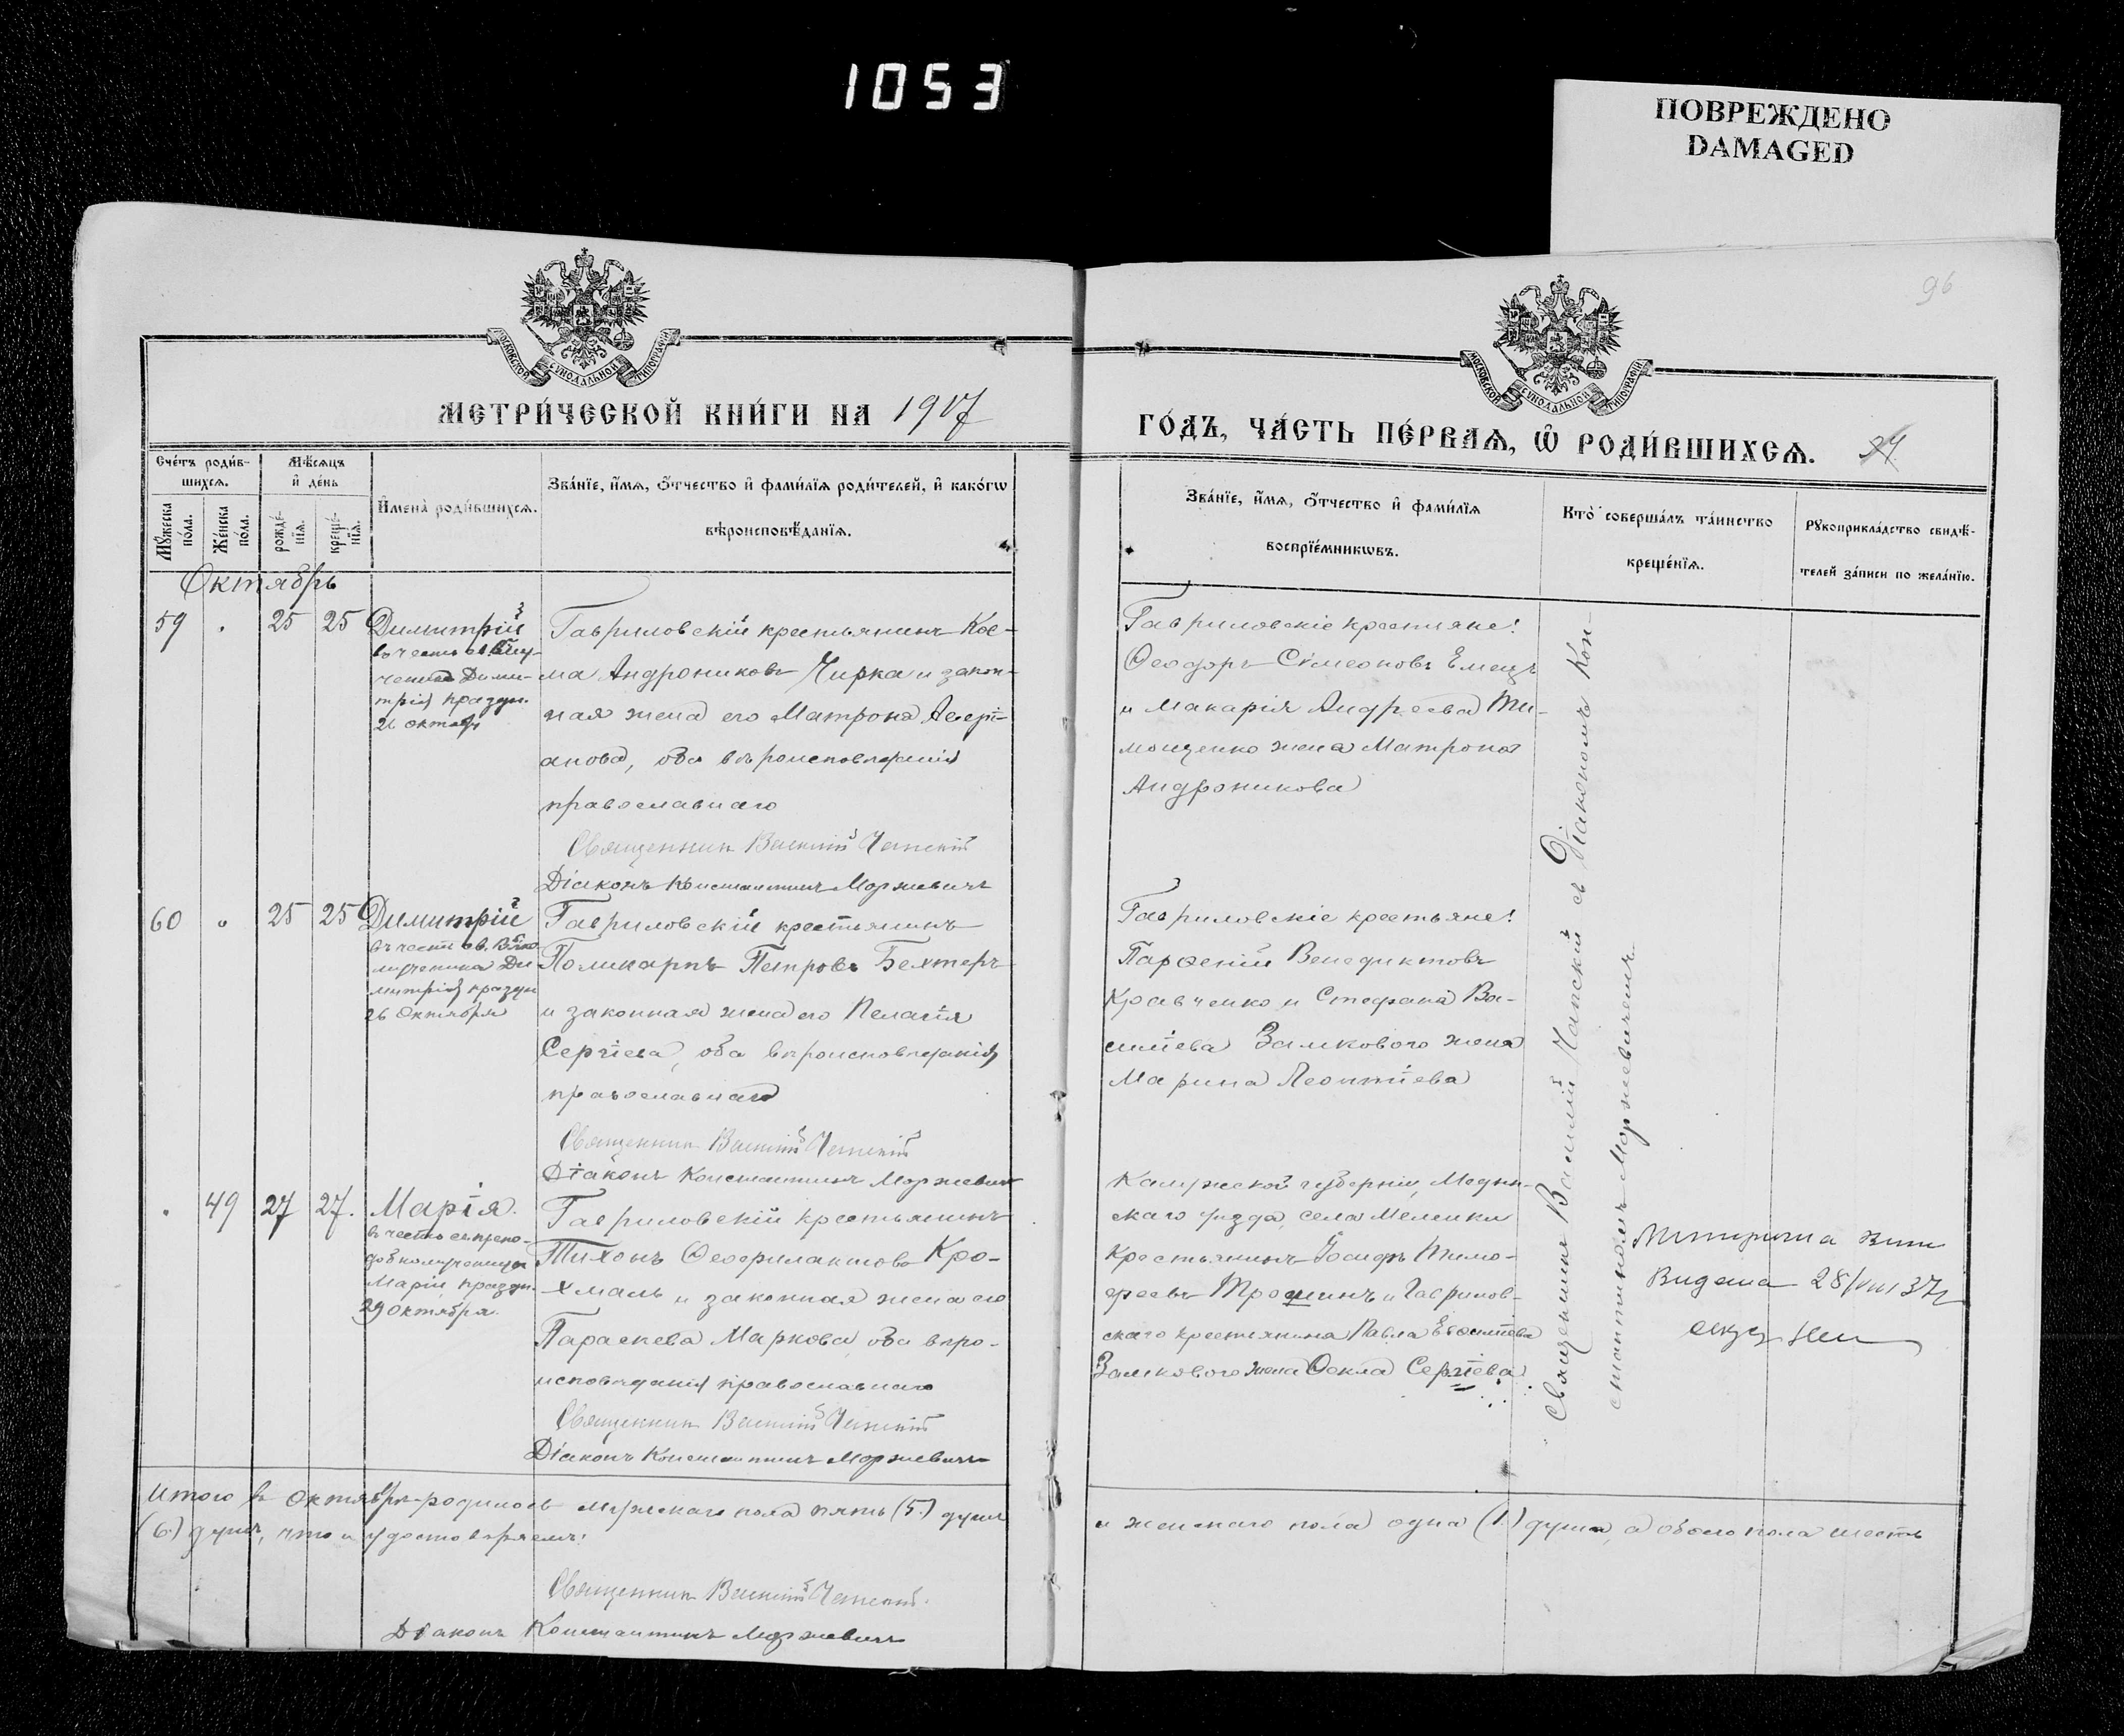 1053
ПОВРЕЖДЕНО
DAMAGED
96
МОСКОВСКОЙ СѴНОДАЛЬНОЙ ТИПОГРАФІИ
МОСКОВСКОЙ СѴНОДАЛЬНОЙ ТИПОГРАФІИ
МЕТРИ́ЧЕСКОЙ КНИ́ГИ НА 1907
ГО́ДЪ, ЧА́СТЬ ПЕ́РВАѦ, Ѿ РОДИ́ВШИХСѦ.
Сче́тъ роди́в-
шихсѧ.
Мꙋ́жеска по́ла.
Же́нска по́ла.
Мѣ́сѧцъ
и҆ де́нь
рожде́-
нїѧ.
креще́-
нїѧ.
И҆мена̀ роди́вшихсѧ.
Зва́нїе, и҆́мѧ, ѻ҆́тчество и҆ фами́лїѧ роди́телей, и҆ како́гѡ
вѣроисповѣ́данїѧ.
Зва́нїе, и҆́мѧ, ѻ҆́тчество и҆ фами́лїѧ
воспрїе́мникѡвъ.
Кто̀ соверша́лъ та́инство
креще́нїѧ.
Рꙋкоприкла́дство свидѣ́-
телей за́писи по жела́нїю.
Октябрь
59 25 25 Димитрій
въ честь св.
ченика Дими-
трія праздн.
26 октябр
Гавриловскій крестьянинъ Кос-
ма Андрониковъ Чирка и закон-
ная жена его Матрона Авері-
анова, оба вѣроисповѣданія
православнаго
Священникъ Василій
Діаконъ Константинъ Моржевичъ
Гавриловскіе крестьяне:
Ѳеодоръ Сѵмеоновъ Емецъ
и Макарія Андреева Ти-
мощенко жена Матрона
Андроникова
60 25 25 Димитрій
въ честь св. Вели-
мученика Ди-
митрія праздн
26 Октября
Гавриловскій крестьянинъ
Поликарпъ Петровъ Бехтеръ
и законная жена его Пелагія
Сергіева, оба вѣроисповѣданія
православнаго
Священникъ Василій
Діаконъ Константинъ Моржевичъ
Гавриловскіе крестьяне:
Парѳеній Венедиктовъ
Кравченко и Стефана Ва-
силіева Замкового жена
Марина Леонтіева
49 27 27. Марія.
въ честь св. препо-
добномученицы
Маріи, праздн.
29 Октября.
Гавриловскій крестьянинъ
Тихонъ Ѳеофилактовъ Кро-
хмаль и законная жена его
Параскева Маркова, оба вѣро-
исповѣданія православнаго
Священникъ Василій
Діаконъ Константинъ Моржевичъ
Калужской губерніи, Медын-
скаго уѣзда, села Меленки
крестьянинъ Іосифъ Тимо-
феевъ Трошинъ и Гаврилов-
скаго крестьянина Павла Евсиміева
Замкового жена Ѳекла Сергіева
Священникъ Василій съ Діакономъ Кон-
стантиномъ Моржевичемъ
Метричка
Видана 28/VIII 37
Итого въ Октябрѣ родилось мужескаго пола пять (5.) душъ
и женскаго пола одна (1.) душа, а обоего пола шесть
(6.) душъ, что и удостовѣряемъ:
Священникъ Василій
Діаконъ Константинъ Моржевичъ